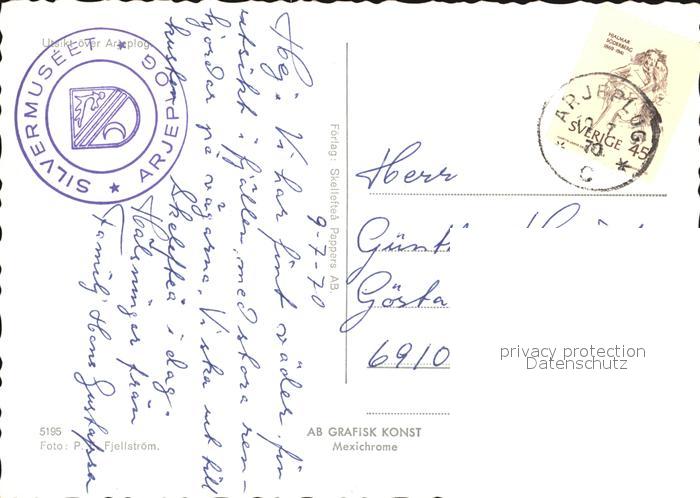 Utsikt över Arjeplog
SILVERMUSÉET ★ ARJEPLOG ★
Hej. Vi har fint väder, fin
utsikt i fjällen, med stora ren-
hjordar på vägarna. Vi ska ut till
kusten Skellefteå i dag.
Hälsningar från
Familj Hans Gustafsson
9-7-70
Förlag: Skellefteå Pappers AB.
5195
Foto: P. Fjellström.
AB GRAFISK KONST
Mexichrome
HJALMAR
SÖDERBERG
1869-1941
SVERIGE 45
ARJEPLOG
7
70
C
Herr
Günt
Gösta
6910
privacy protection
Datenschutz